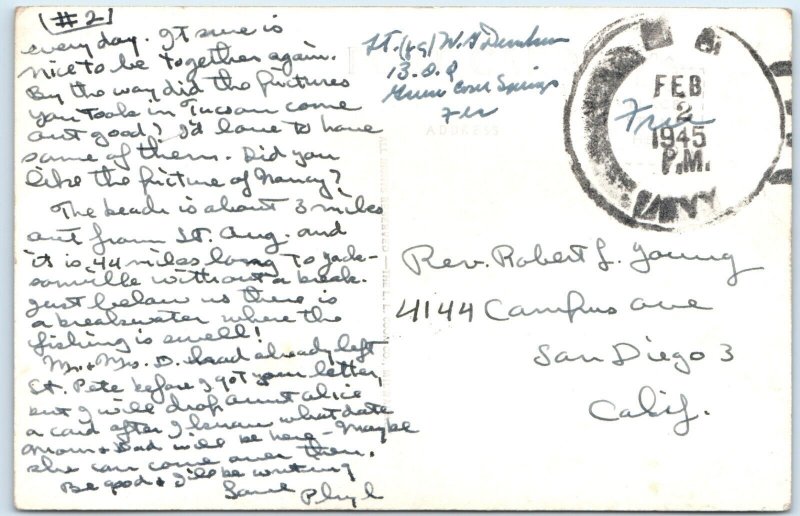 (#2)
every day. It sure is
nice to be together again.
By the way did the pictures
you took in Tucson come
out good? I'd love to have
some of them. Did you
like the picture of Nancy?
The beach is about 3 miles
out from St. Aug. and
it is 44 miles long to Jack-
sonville without a break.
Just below us there is
a breakwater where the
fishing is swell!
Mr. + Mrs. D. had already left
St. Pete before I got your letter,
but I will drop Aunt Alice
a card after I know what date
Mom + Dad will be here - Maybe
she can come over then.
Be good + I'll be writing
Love Phyl
Lt. (jg) W. G.
B.O.Q
Green Cove Springs
Fla
ADDRESS
Free
FEB
2
1945
P.M.
NAVY
Rev. Robert L. Young
4144 Campus ave
San Diego 3
Calif.